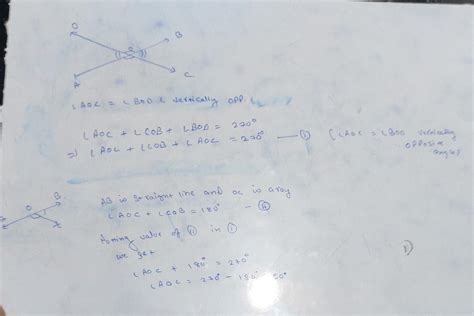 D
B
O
A
C
∠AOC = ∠BOD ( vertically opp. ∠
∠AOC + ∠COB + ∠BOD = 270°
⇒ ∠AOC + ∠COB + ∠AOC = 270° — (i) (∠AOC = ∠BOD vertically opposite angles)
O
B
AB is straight line and OC is a ray
∠AOC + ∠COB = 180° — (ii)
value of (ii) in (i)
we get
∠AOC + 180° = 270°
∠AOC = 270° - 180°